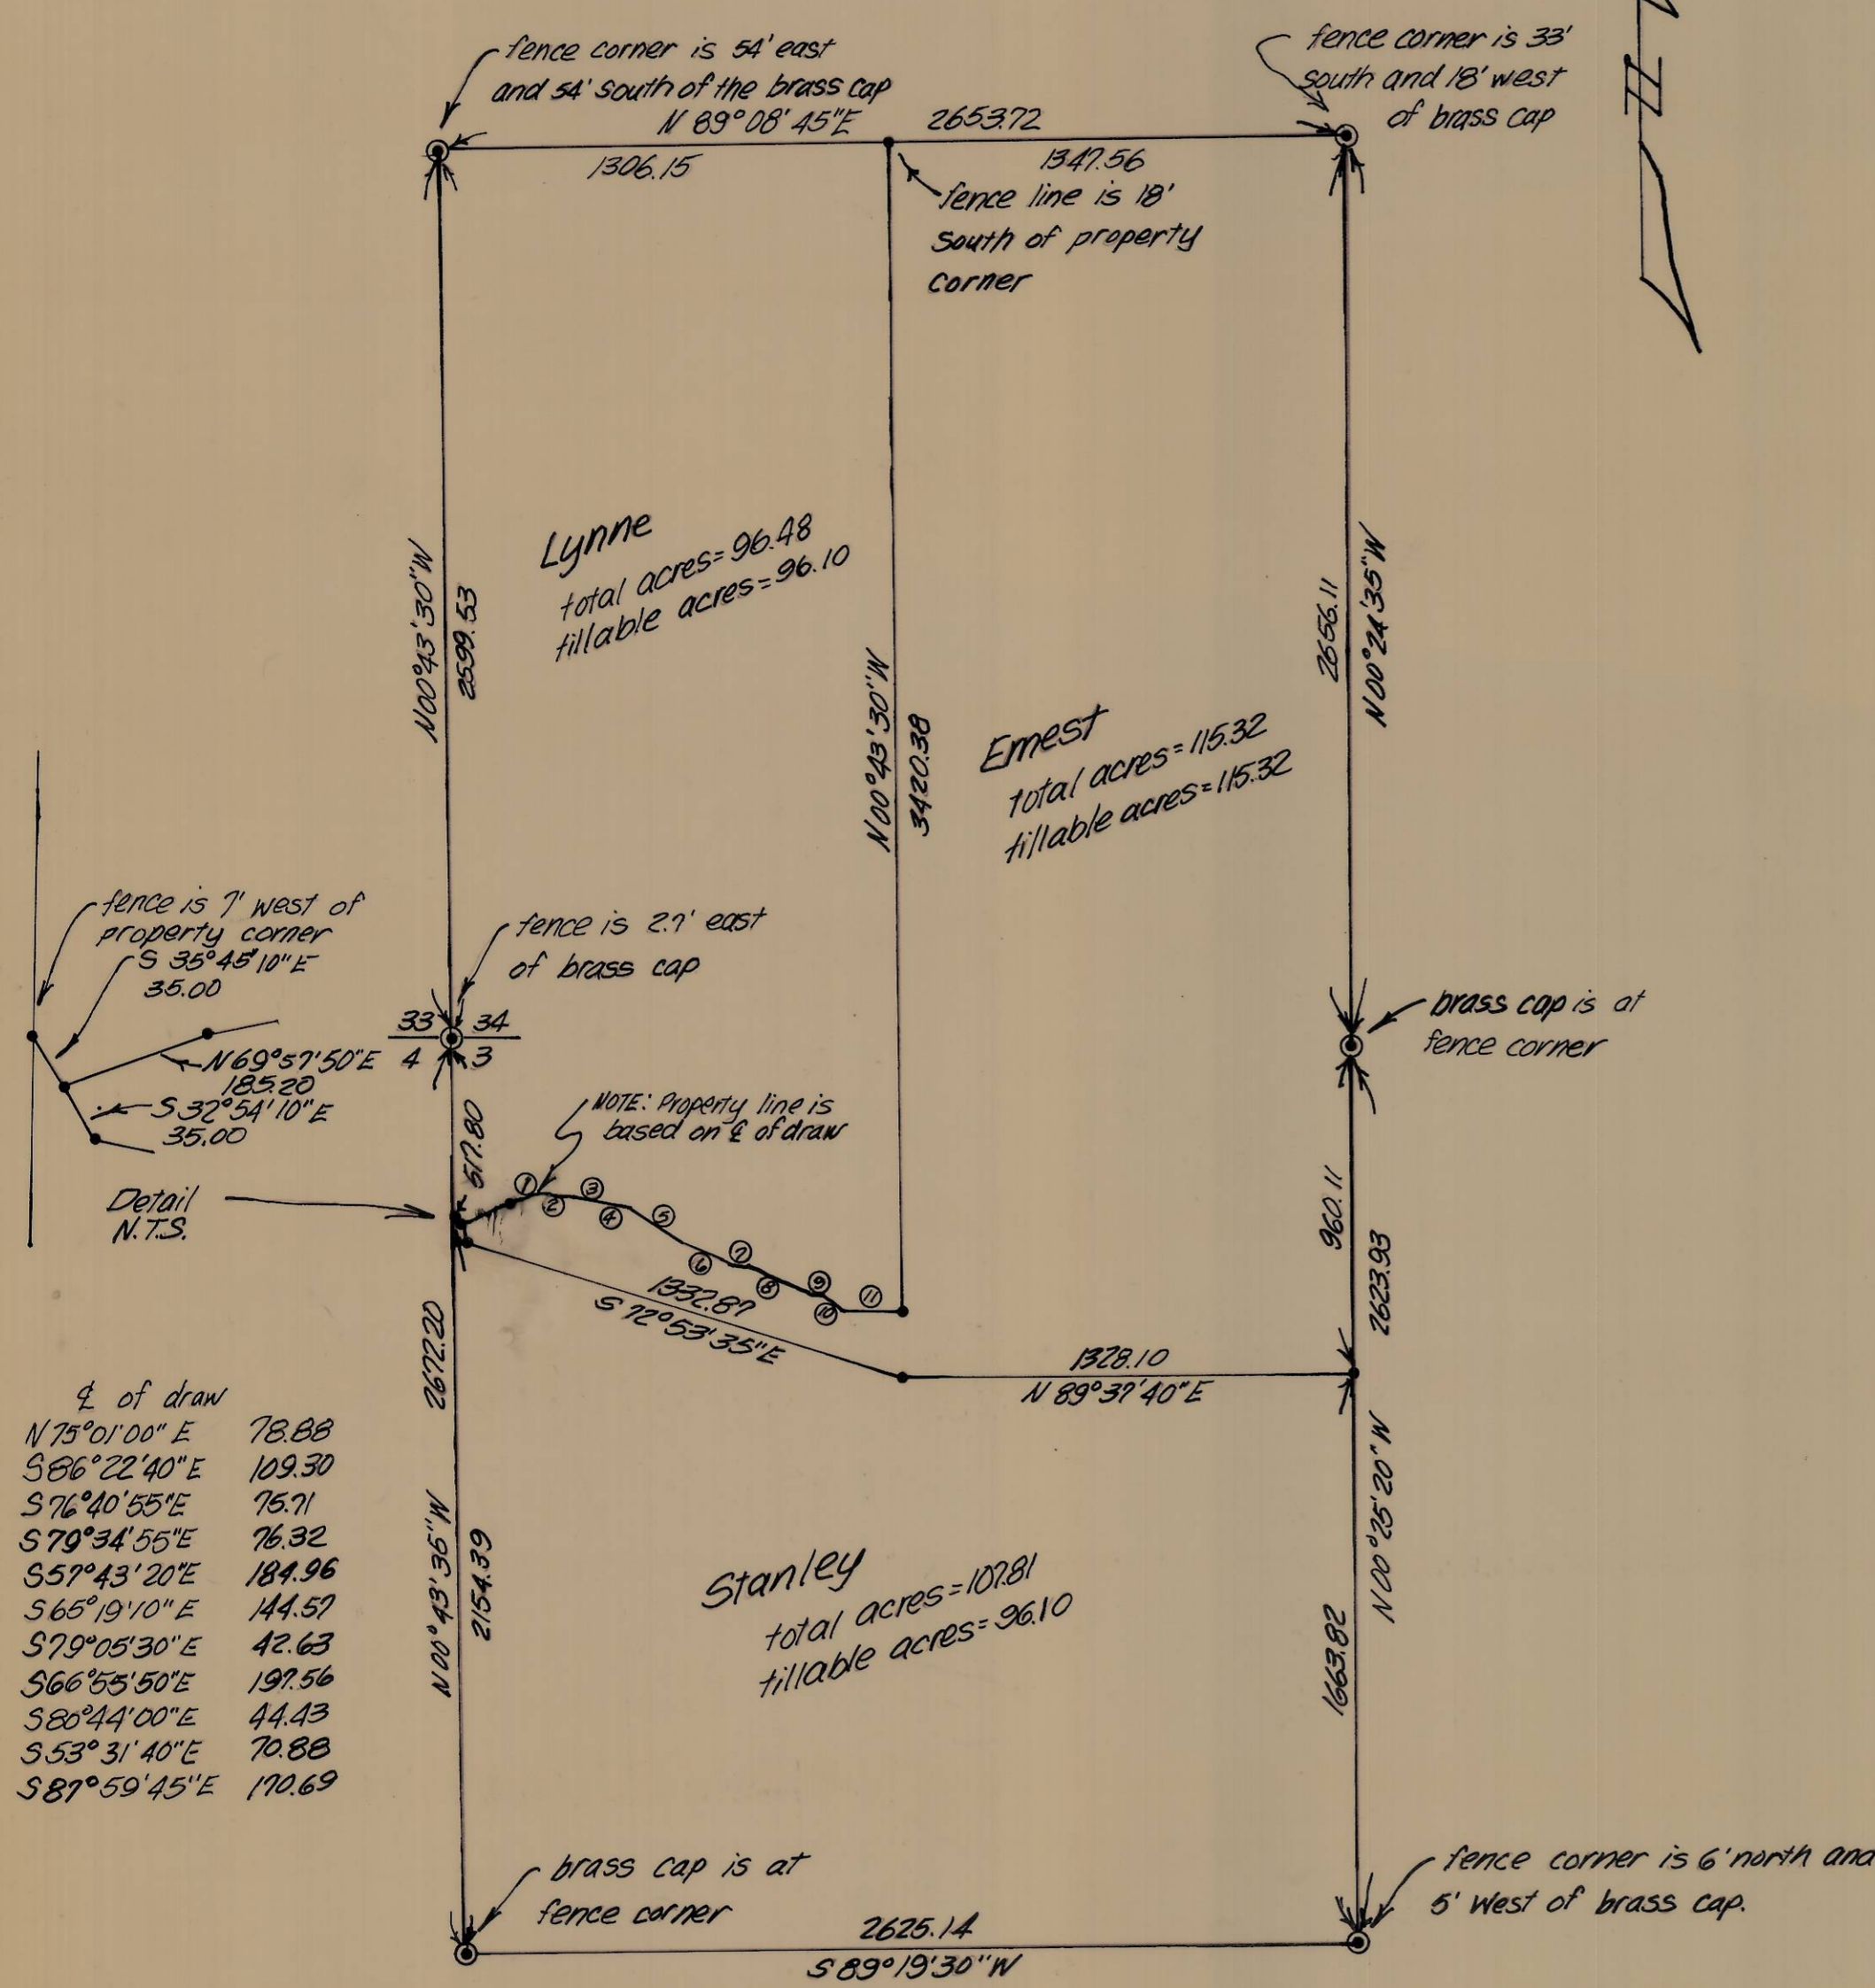 fence corner is 54' east
and 54' south of the brass cap
fence corner is 33'
south and 18' west
of brass cap
N 89°08'45"E 2653.72
1306.15
1347.56
fence line is 18'
south of property
corner
N00°43'30"W
2599.53
Lynne
total acres=96.48
tillable acres=96.10
N00°43'30"W
3420.38
2656.11
N00°24'35"W
Ernest
total acres=115.32
tillable acres=115.32
fence is 7' west of
property corner
S 35°45'10"E
35.00
N69°57'50"E
185.20
S32°54'10"E
35.00
Detail
N.T.S.
fence is 2.7' east
of brass cap
33 34
4 3
brass cap is at
fence corner
517.80
NOTE: Property line is
based on ℄ of draw
① ② ③ ④ ⑤ ⑥ ⑦ ⑧ ⑨ ⑩ ⑪
1332.87
S 72°53'35"E
1328.10
N 89°37'40"E
960.11
2623.93
2672.20
N00°43'35"W
2154.39
℄ of draw
N75°01'00"E 78.88
S86°22'40"E 109.30
S76°40'55"E 75.71
S79°34'55"E 76.32
S57°43'20"E 184.96
S65°19'10"E 144.57
S79°05'30"E 42.63
S66°55'50"E 197.56
S80°44'00"E 44.43
S53°31'40"E 70.88
S87°59'45"E 170.69
Stanley
total acres=107.81
tillable acres=96.10
N00°25'20"W
1663.82
brass cap is at
fence corner
2625.14
S89°19'30"W
fence corner is 6' north and
5' west of brass cap.